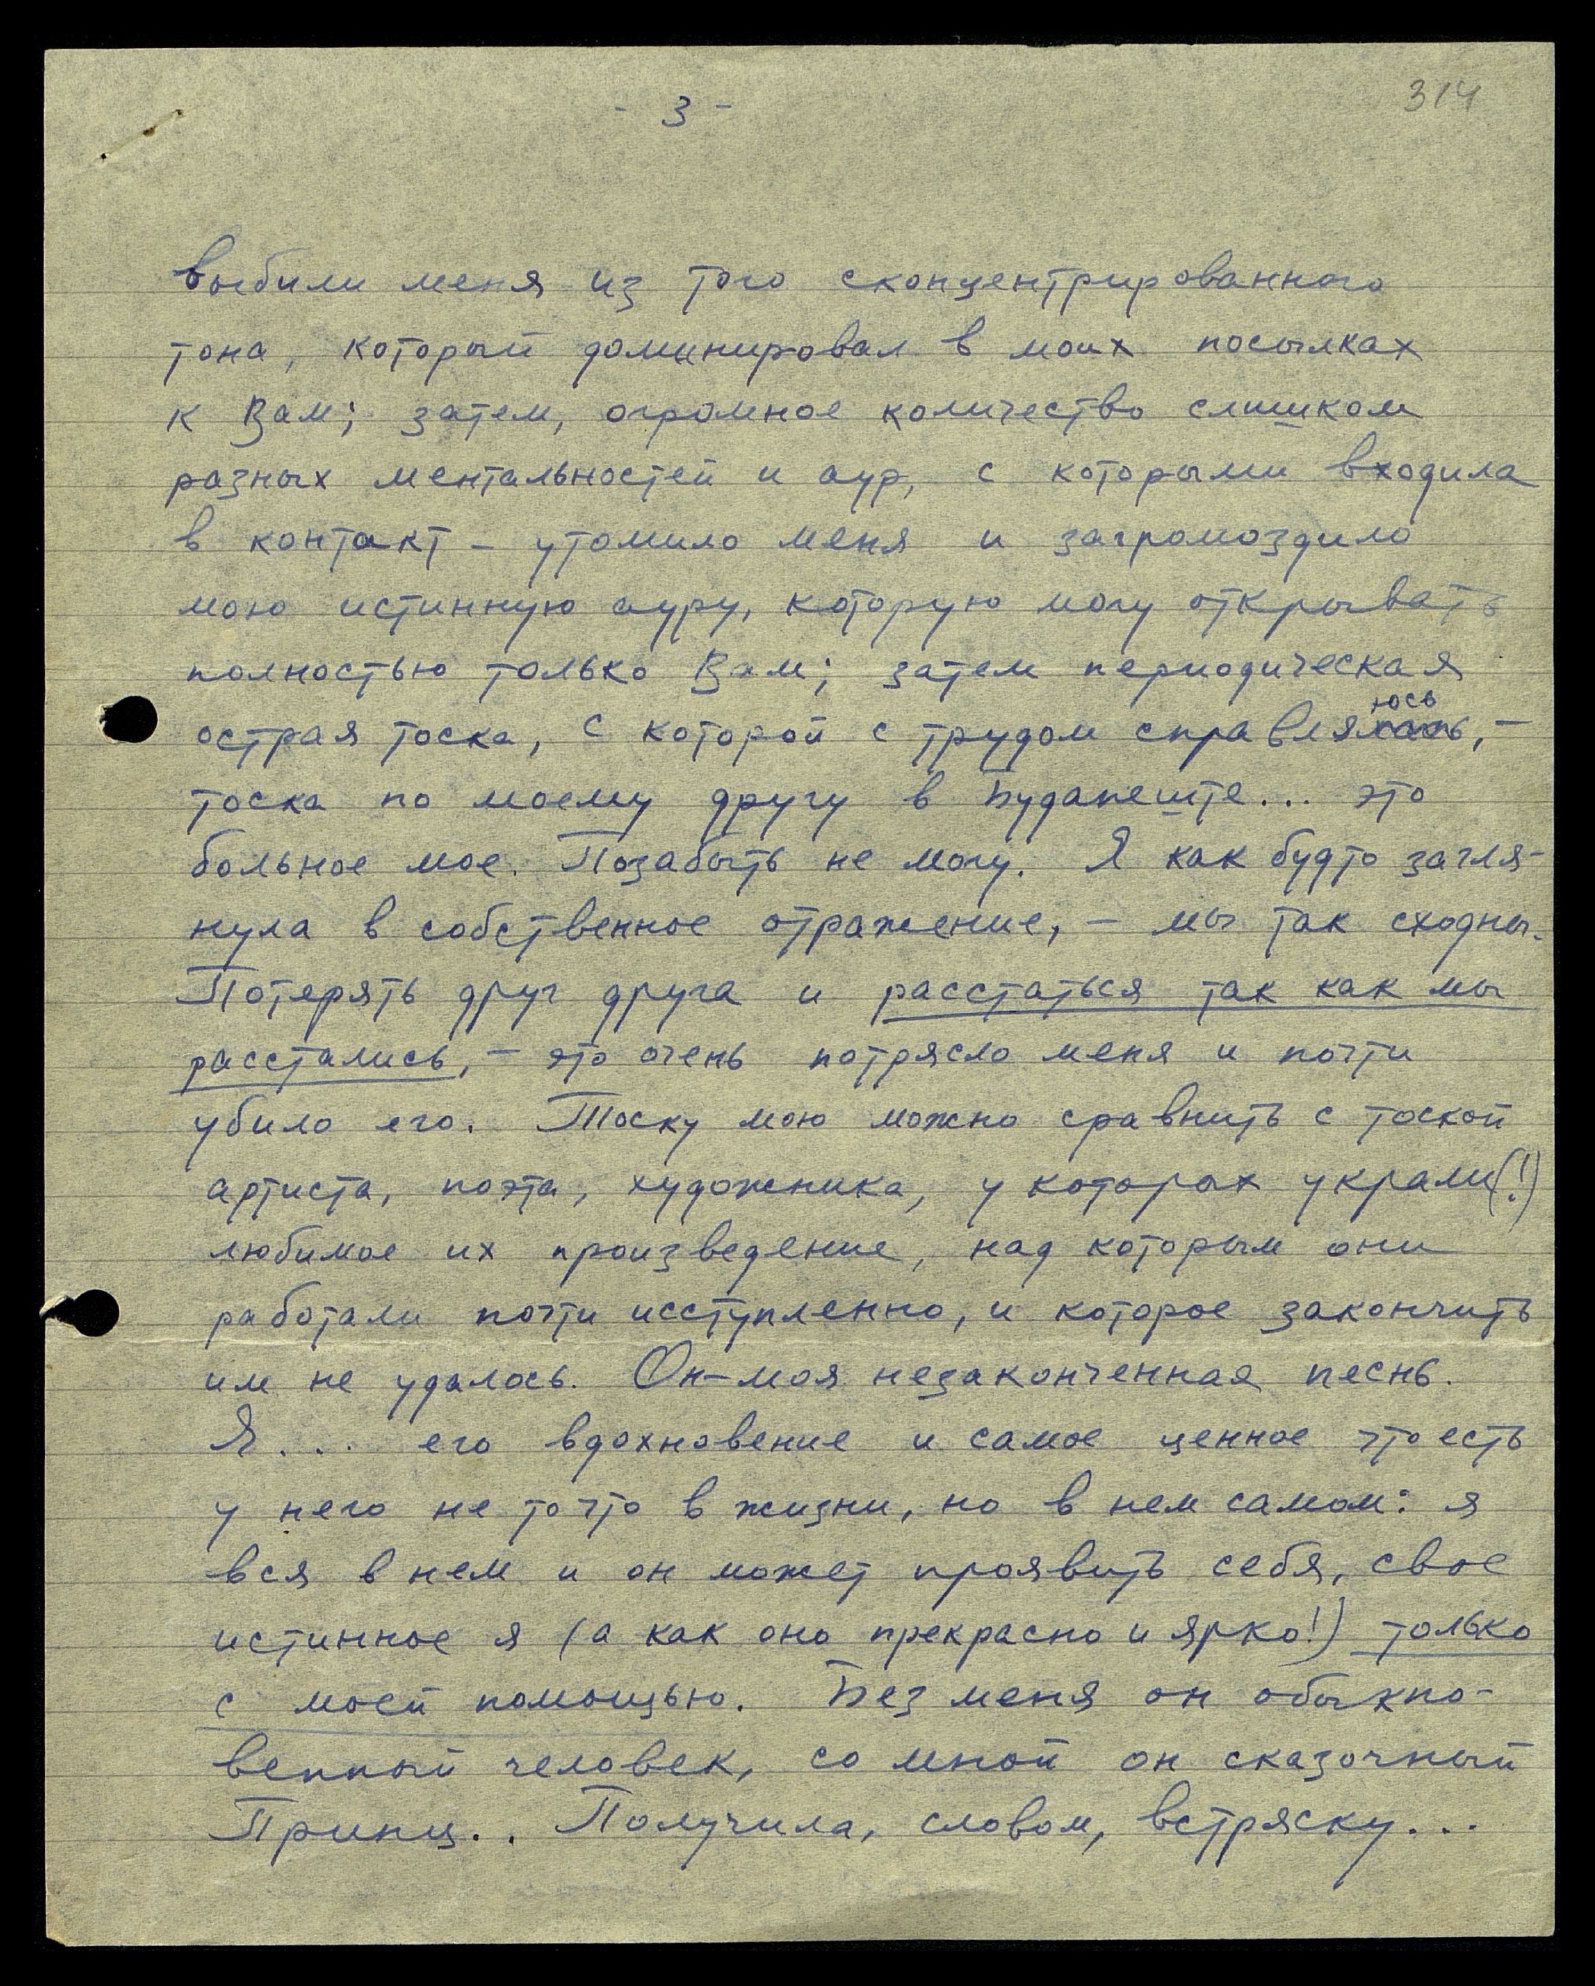 - 3 -
314
выбили меня из того сконцентрированного
тона, который доминировал в моих посылках
к Вам; затем, огромное количество слишком
разных ментальностей и аур, с которыми входила
в контакт – утомило меня и загромоздило
мою истинную ауру, которую могу открывать
полностью только Вам; затем периодическая
острая тоска, с которой с трудом справляюсь, –
тоска по моему другу в Будапеште... это
больное мое. Позабыть не могу. Я как будто загля-
нула в собственное отражение, – мы так сходны.
Потерять друг друга и расстаться так как мы
расстались, – это очень потрясло меня и почти
убило его. Тоску мою можно сравнить с тоской
артиста, поэта, художника, у которых украли(!)
любимое их произведение, над которым они
работали почти исступленно, и которое закончить
им не удалось. Он – моя незаконченная песнь.
Я... его вдохновение и самое ценное что есть
у него не то что в жизни, но в нем самом: я
вся в нем и он может проявить себя, свое
истинное я (а как оно прекрасно и ярко!) только
с моей помощью. Без меня он обыкно-
венный человек, со мной он сказочный
Принц.. Получила, словом, встряску...